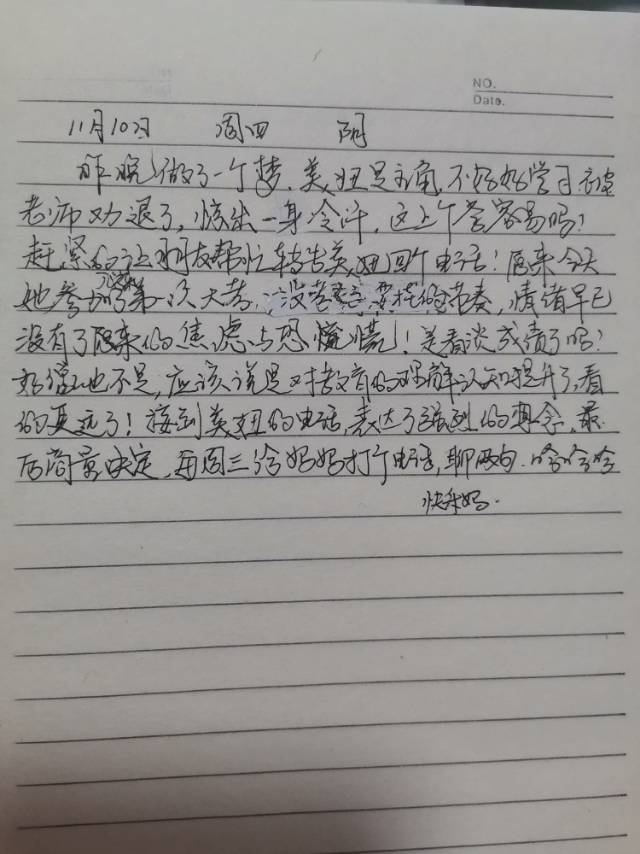 NO.
Date.
11月10日 周四 阴
昨晚做了一个梦,美妞是主角,不好好学习被
老师劝退了,惊出一身冷汗,这上个学容易吗!
赶紧的让朋友帮忙转告美妞回个电话!原来今天
她参加了第一次大考,没考完的节奏,情绪早已
没有了原来的焦虑与恐慌!是看淡成绩了吗?
好像也不是,应该说是对教育的理解认知提升了,看
的更远了!接到美妞的电话,表达了强烈的想念,最
后商量决定,每周三给妈妈打个电话,聊两句.哈哈哈
快乐妈.